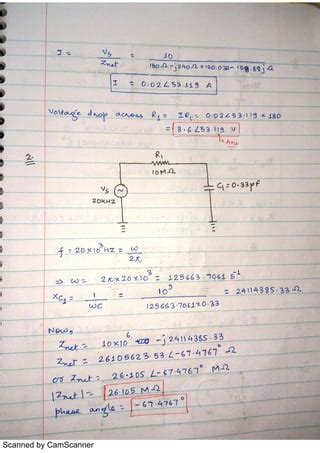 I = Vs / Znet = 10 / 180Ω - j240Ω + 120.030 - 158.58j Ω
I = 0.02 ∠53.119 A
Voltage drop across R1 = IR1 = 0.02∠53.119 × 180
= 3.6 ∠53.119 V
Ans
2.
R1
10MΩ
Vs
20KHZ
C1 = 0.33pF
f = 20×10³ HZ = ω / 2π
⇒ ω = 2π×20×10³ = 125663.7061 s⁻¹
XC1 = 1 / ωC = 10⁹ / 125663.7061×0.33 = 24114385.33 Ω
Now,
Znet = 10×10⁶ - j 24114385.33
Znet = 26105623.53 ∠-67.4767° Ω
or Znet = 26.105 ∠-67.4767° MΩ
|Znet| = 26.105 MΩ
phase angle = -67.4767°
Scanned by CamScanner